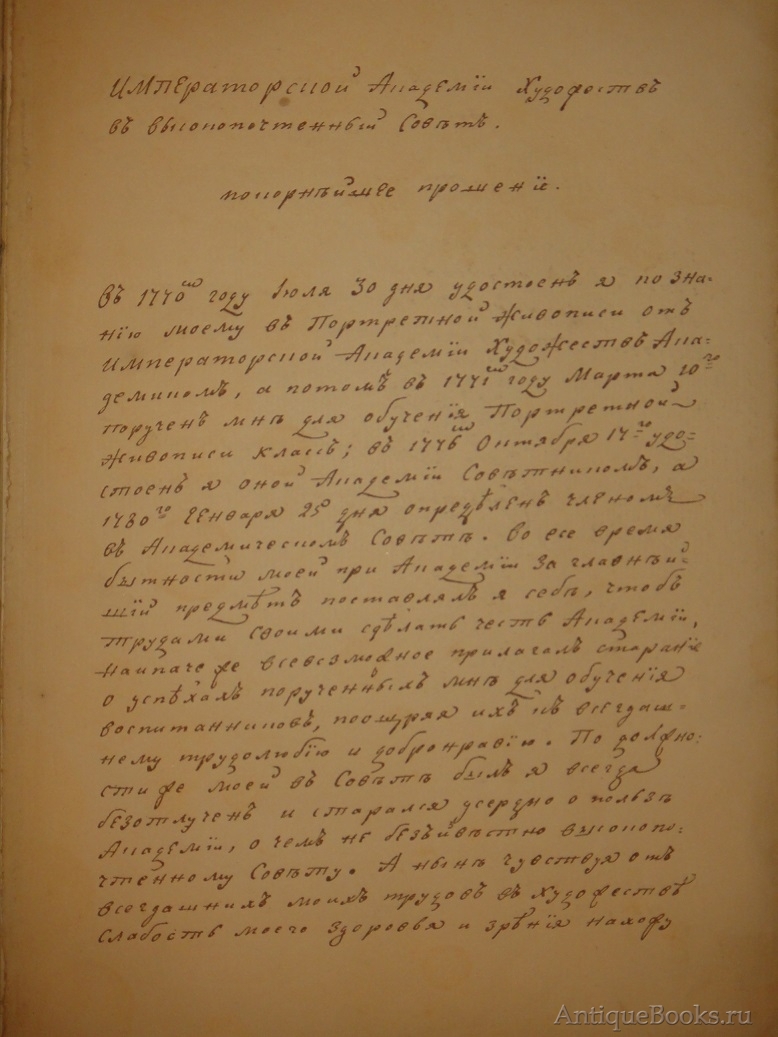 Императорской Академіи Художествъ
въ высокопочтенный Совѣтъ.
покорнѣйшее прошеніе.
Въ 1770ᵐ году Іюля 30 дня удостоенъ я по зна-
нію моему въ Портретной Живописи отъ
Императорской Академіи Художествъ Ака-
демикомъ, а потомъ въ 1771ᵐ году Марта 10ᵍᵒ
порученъ мнѣ для обученія Портретной
живописи классъ; въ 1776ᵐ Октября 17ᵍᵒ удо-
стоенъ я оной Академіи Совѣтникомъ, а
1780ᵍᵒ Генваря 25 дня опредѣленъ членомъ
въ Академическомъ Совѣтѣ. Во все время
бытности моей при Академіи за главнѣй-
шій предмѣтъ поставлялъ я себѣ, чтобъ
трудами своими сдѣлать честь Академіи,
наипаче же всевозможное прилагалъ стараніе
о успѣхахъ порученныхъ мнѣ для обученія
воспитанниковъ, поощряя ихъ къ всегдаш-
нему трудолюбію и добронравію. По должно-
сти же моей въ Совѣтѣ былъ я всегда
безотлученъ и старался усердно о пользѣ
Академіи, о чемъ не безъизвѣстно высокопо-
чтенному Совѣту. А нынѣ чувствуя отъ
всегдашнихъ моихъ трудовъ въ Художествѣ
слабость моего здоровья и зрѣнія нахожу
AntiqueBooks.ru